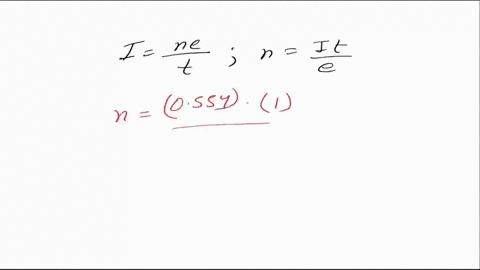 I = ne/t ; n = It/e
n = (0.554) · (1)